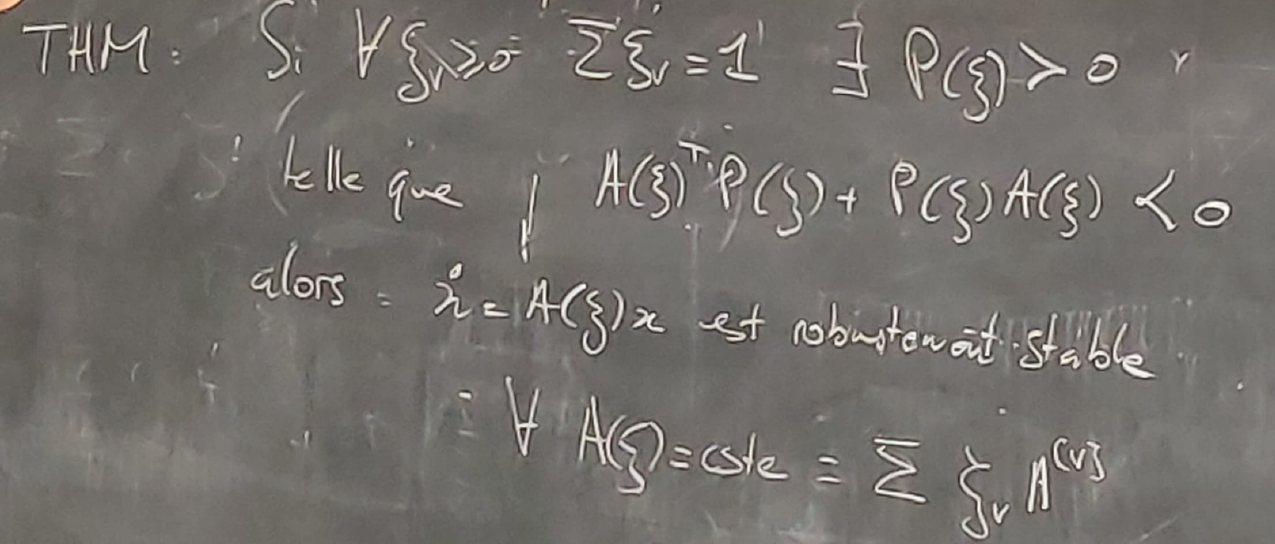 THM: Si ∀ ξᵥ≥0 Σξᵥ=1 ∃ P(ξ)>0
telle que A(ξ)ᵀP(ξ)+ P(ξ)A(ξ) <0
alors: ẋ=A(ξ)x est robustement stable
∀ A(ξ)=cste = Σ ξᵥ A⁽ᵛ⁾